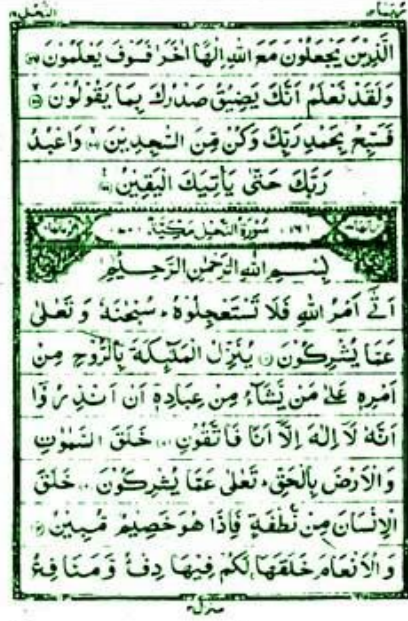 الَّذِيْنَ يَجْعَلُوْنَ مَعَ اللهِ اِلٰهًا اٰخَرَ فَسَوْفَ يَعْلَمُوْنَ
وَلَقَدْ نَعْلَمُ اَنَّكَ يَضِيْقُ صَدْرُكَ بِمَا يَقُوْلُوْنَ
فَسَبِّحْ بِحَمْدِ رَبِّكَ وَكُنْ مِّنَ السّٰجِدِيْنَ وَاعْبُدْ
رَبَّكَ حَتّٰى يَاْتِيَكَ الْيَقِيْنُ
سُوْرَةُ النَّحْلِ مَكِّيَّةٌ
بِسْمِ اللهِ الرَّحْمٰنِ الرَّحِيْمِ
اَتٰى اَمْرُ اللهِ فَلَا تَسْتَعْجِلُوْهُ سُبْحٰنَهٗ وَ تَعٰلٰى
عَمَّا يُشْرِكُوْنَ يُنَزِّلُ الْمَلٰٓئِكَةَ بِالرُّوْحِ مِنْ
اَمْرِهٖ عَلٰى مَنْ يَّشَآءُ مِنْ عِبَادِهٖٓ اَنْ اَنْذِرُوْٓا
اَنَّهٗ لَآ اِلٰهَ اِلَّآ اَنَا فَاتَّقُوْنِ خَلَقَ السَّمٰوٰتِ
وَ الْاَرْضَ بِالْحَقِّ تَعٰلٰى عَمَّا يُشْرِكُوْنَ خَلَقَ
الْاِنْسَانَ مِنْ نُّطْفَةٍ فَاِذَا هُوَ خَصِيْمٌ مُّبِيْنٌ
وَ الْاَنْعَامَ خَلَقَهَا لَكُمْ فِيْهَا دِفْءٌ وَّ مَنَافِعُ